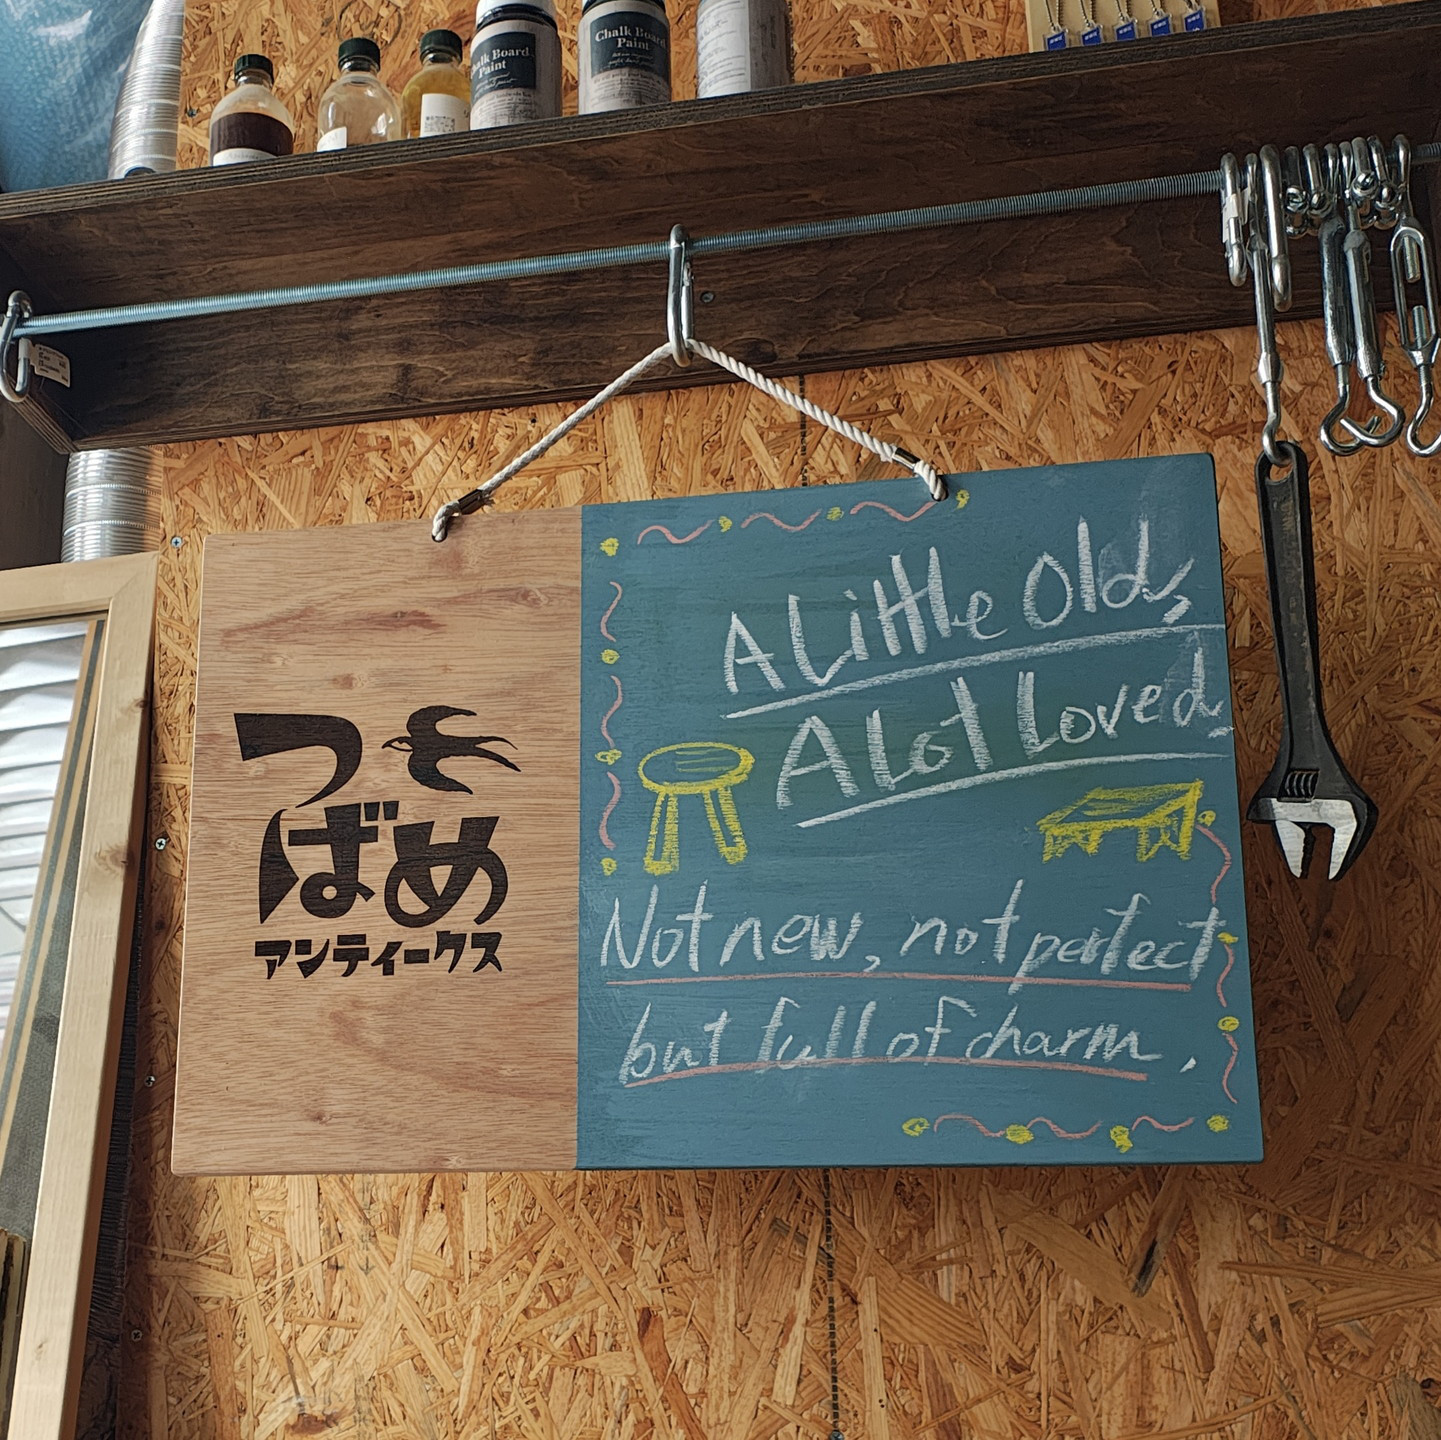 Chalk Board
Paint
Chalk Board
Paint
つ
ばめ
アンティークス
A Little Old,
A Lot Loved.
Not new, not perfect
but full of charm.